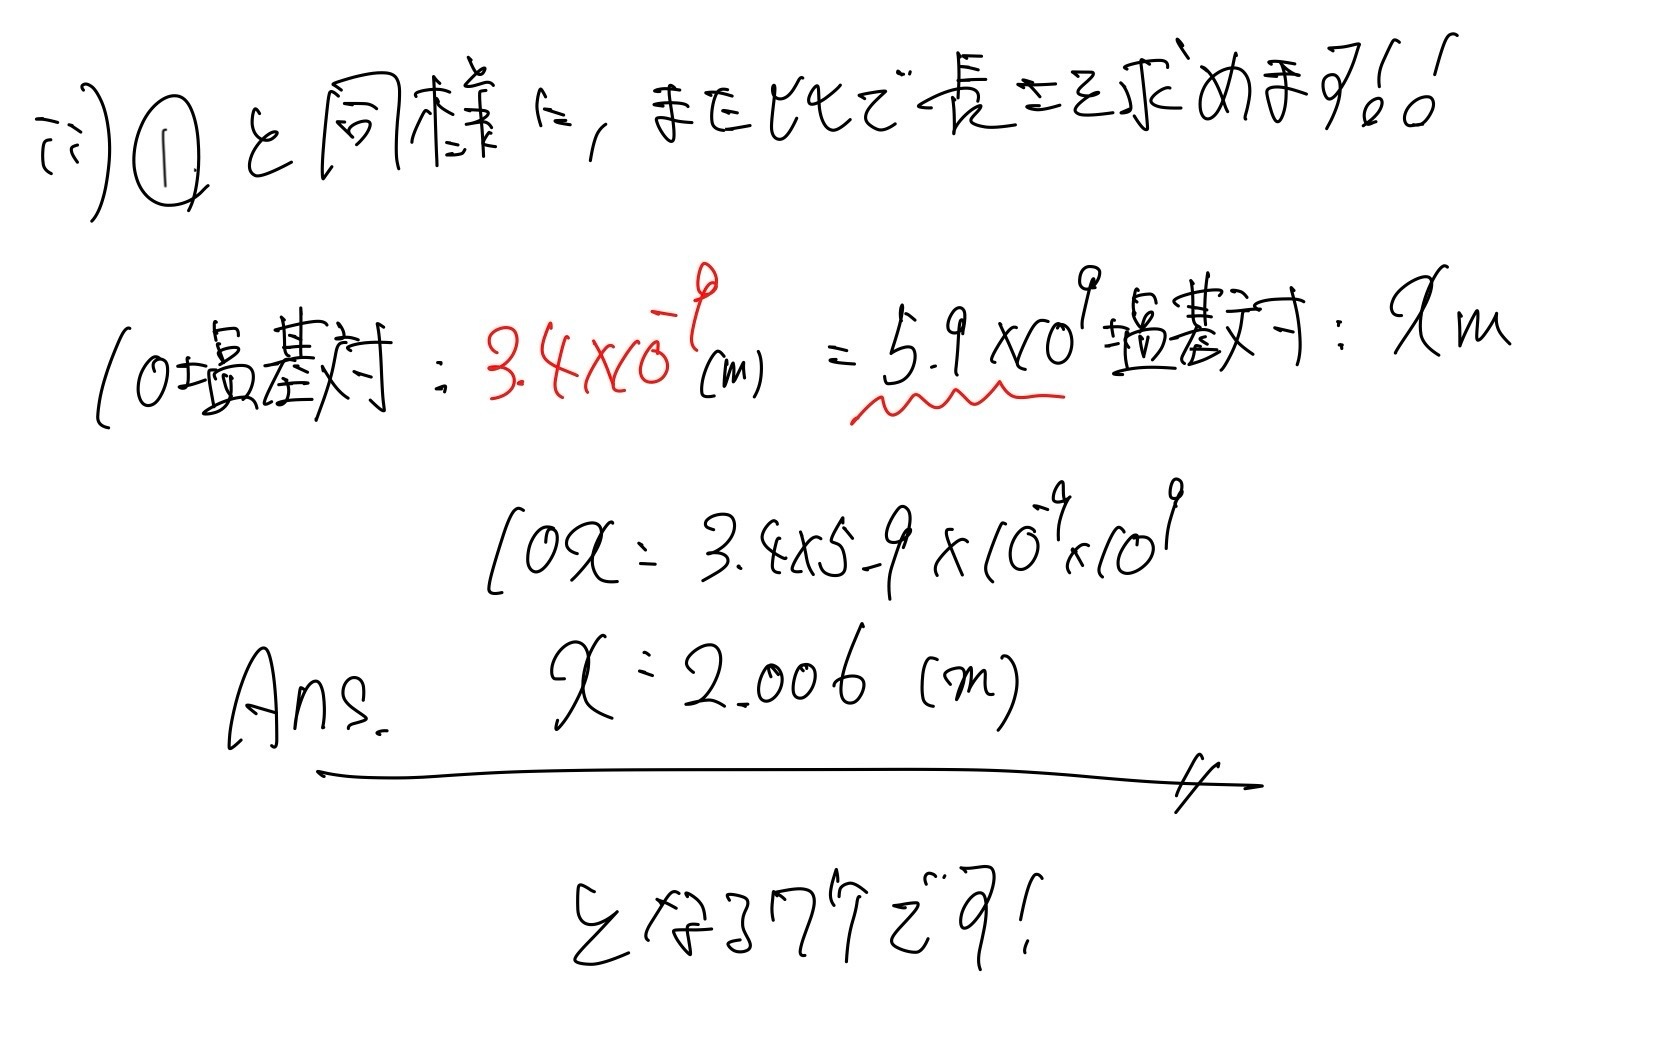 ii) ① と同様に, また比で長さを求めます!!
10塩基対 : 3.4×10⁻⁹ (m) = 5.9×10⁹塩基対 : x m
10x = 3.4×5.9×10⁻⁹×10⁹
Ans. x = 2.006 (m)
となるワケです!